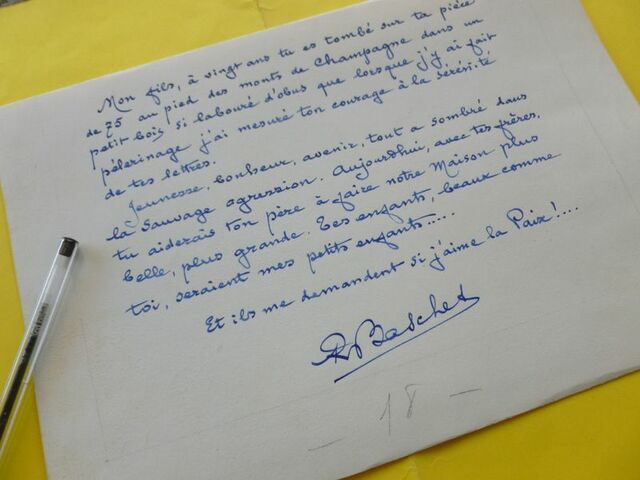 Mon fils, à vingt ans tu es tombé sur ta pièce
de 75 au pied des monts de Champagne dans un
petit bois si labouré d'obus que lorsque j'y ai fait
pélerinage j'ai mesuré ton courage à la sérénité
de tes lettres.
Jeunesse, bonheur, avenir, tout a sombré dans
la sauvage agression. Aujourd'hui, avec tes frères,
tu aiderais ton père à faire notre Maison plus
belle, plus grande. Tes enfants, beaux comme
toi, seraient mes petits enfants.....
Et ils me demandent si j'aime la Paix!....
R Baschet
— 18 —